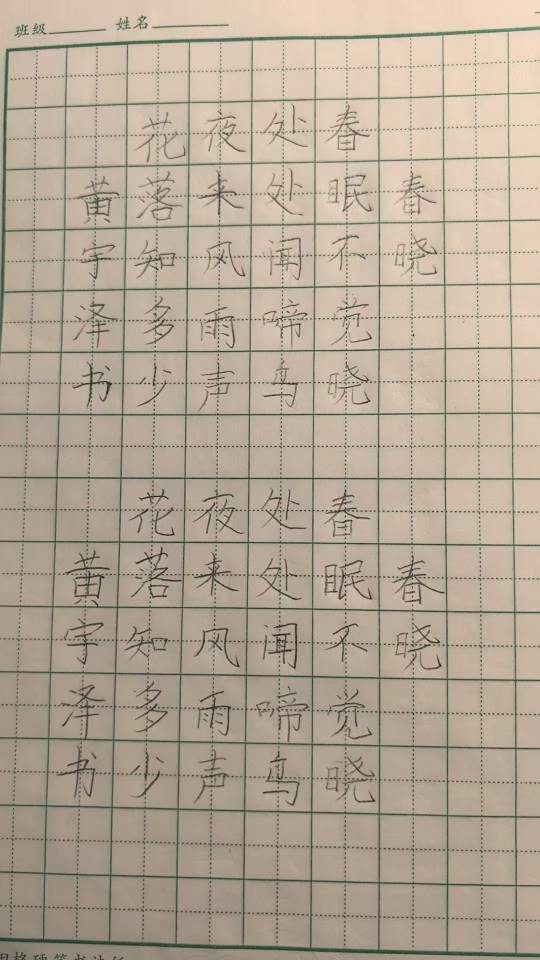 班级 姓名
春晓
春眠不觉晓
处处闻啼鸟
夜来风雨声
花落知多少
黄宇泽书
春晓
春眠不觉晓
处处闻啼鸟
夜来风雨声
花落知多少
黄宇泽书